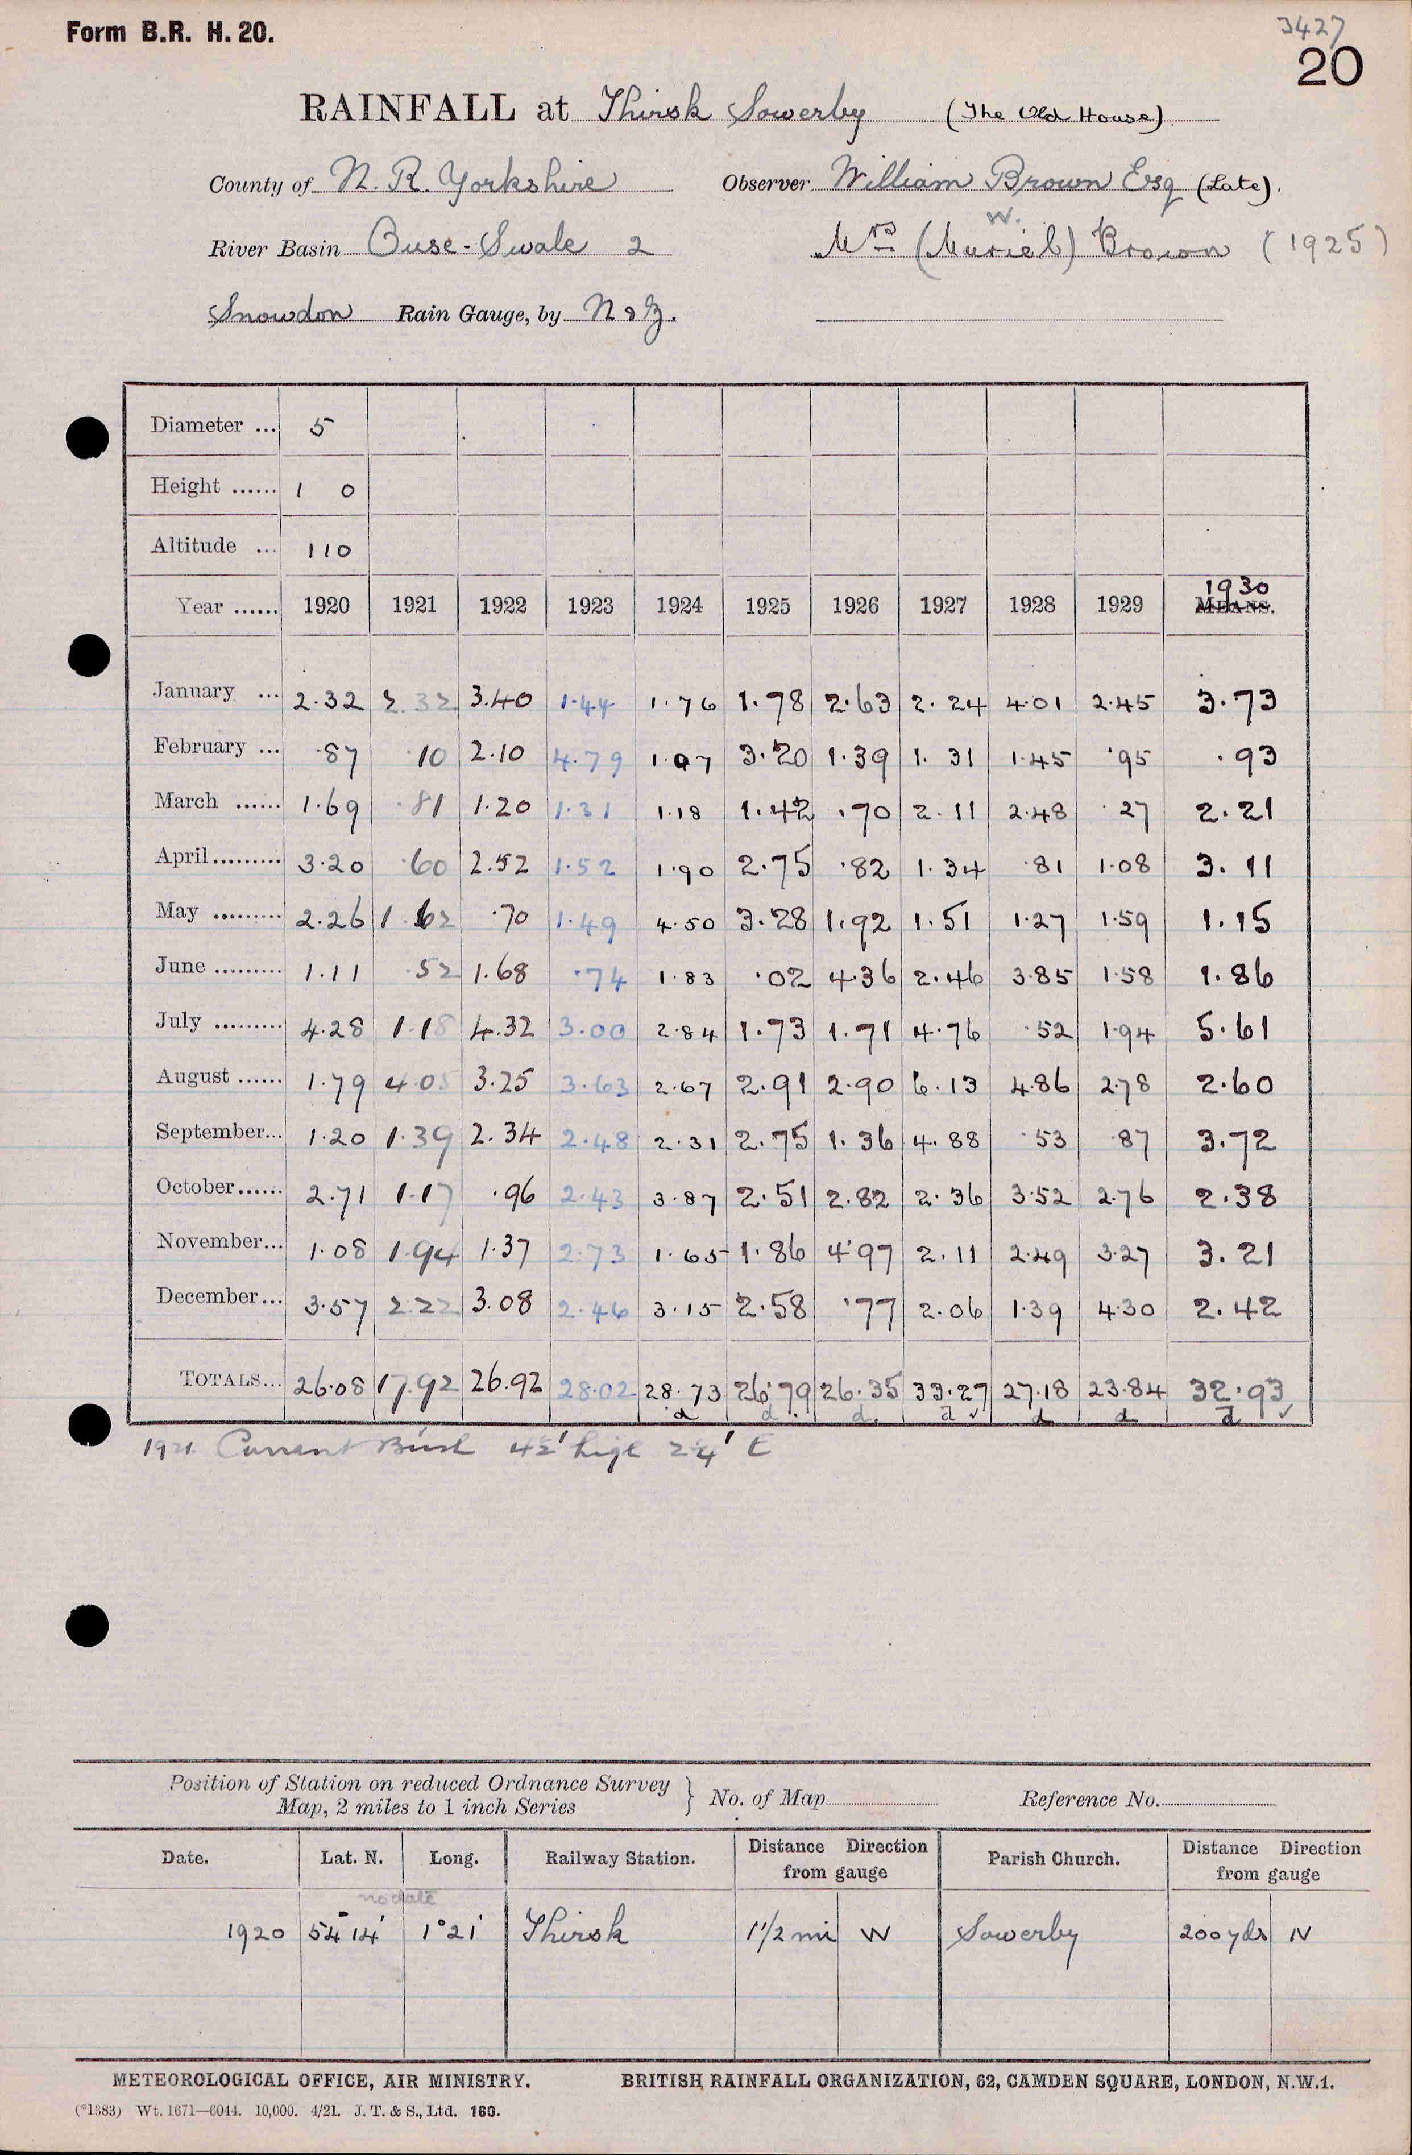 Form B.R. H. 20.
3427
20
RAINFALL at Thirsk Sowerby (The Old House)
County of N. R. Yorkshire Observer William Brown Esq (Late).
W.
River Basin Ouse-Swale 2 Mrs (Muriel) Brown (1925)
Snowdon Rain Gauge, by N & Z.
Diameter ... 5
Height ...... 1 0
Altitude ... 110
1930
Year ...... 1920 1921 1922 1923 1924 1925 1926 1927 1928 1929 MEANS.
January ... 2.32 2.32 3.40 1.44 1.76 1.78 2.63 2.24 4.01 2.45 3.73
February ... .87 .10 2.10 4.79 1.07 3.20 1.39 1.31 1.45 .95 .93
March ...... 1.69 .81 1.20 1.31 1.18 1.42 .70 2.11 2.48 .27 2.21
April......... 3.20 .60 2.52 1.52 1.90 2.75 .82 1.34 .81 1.08 3.11
May ......... 2.26 1.62 .70 1.49 4.50 3.28 1.92 1.51 1.27 1.59 1.15
June ......... 1.11 .52 1.68 .74 1.83 .02 4.36 2.46 3.85 1.58 1.86
July ......... 4.28 1.18 4.32 3.00 2.84 1.73 1.71 4.76 .52 1.94 5.61
August ...... 1.79 4.05 3.25 3.63 2.67 2.91 2.90 6.13 4.86 2.78 2.60
September... 1.20 1.39 2.34 2.48 2.31 2.75 1.36 4.88 .53 .87 3.72
October...... 2.71 1.17 .96 2.43 3.87 2.51 2.82 2.36 3.52 2.76 2.38
November... 1.08 1.94 1.37 2.73 1.65 1.86 4.97 2.11 2.49 3.27 3.21
December... 3.57 2.22 3.08 2.46 3.15 2.58 .77 2.06 1.39 4.30 2.42
TOTALS... 26.08 17.92 26.92 28.02 28.73 26.79 26.35 33.27 27.18 23.84 32.93
d d. d. d ✓ d d d ✓
1921 Currant Bush 4½' high 2¼' E
Position of Station on reduced Ordnance Survey
Map, 2 miles to 1 inch Series } No. of Map Reference No.
Date. Lat. N. Long. Railway Station. Distance Direction from gauge Parish Church. Distance Direction from gauge
no date
1920 54° 14' 1° 21' Thirsk 1 1/2 mi W Sowerby 200 yds N
METEOROLOGICAL OFFICE, AIR MINISTRY. BRITISH RAINFALL ORGANIZATION, 62, CAMDEN SQUARE, LONDON, N.W.1.
(*1383) Wt. 1671—6044. 10,000. 4/21. J. T. & S., Ltd. 160.